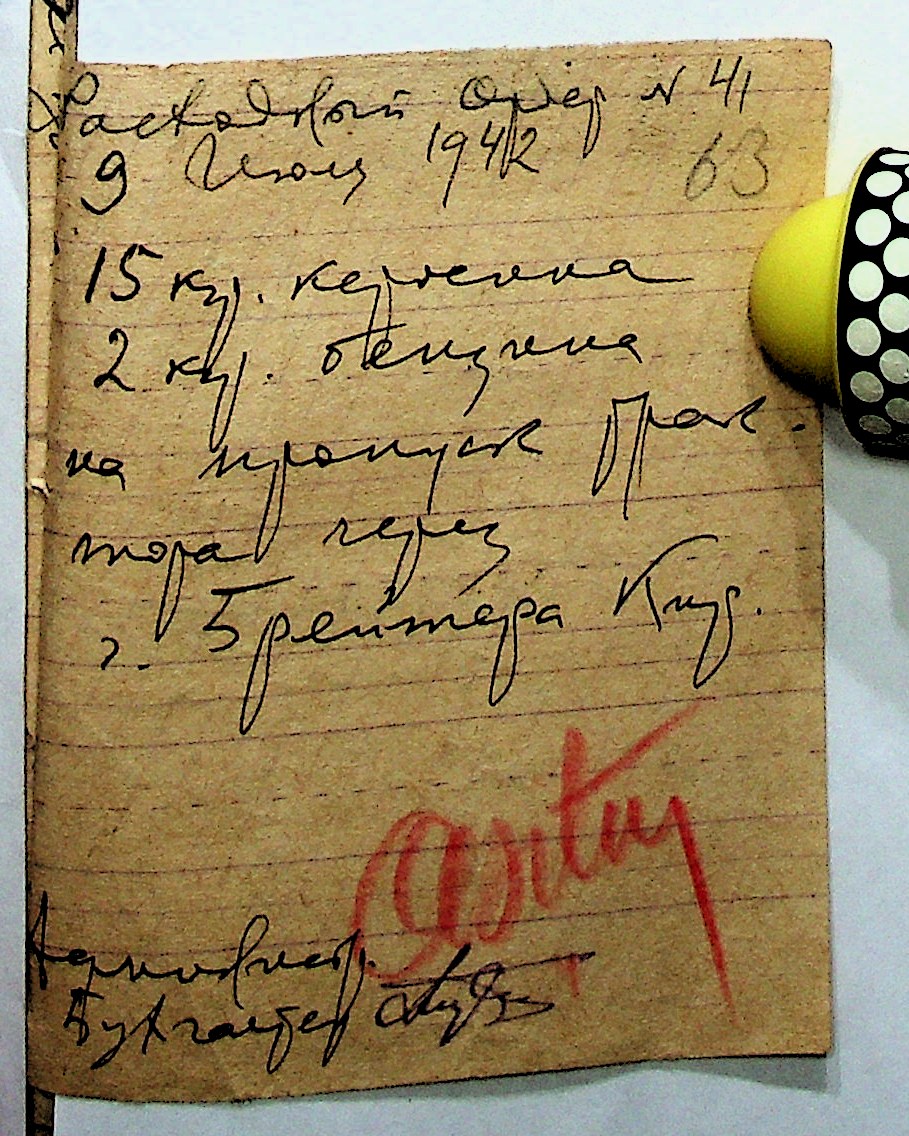 Расходовый Ордер N 41
9 Июля 1942
63
15 кгр. керосина
2 кгр. бензина
на пропуск Трак-
тора через
г. Брейтера Кнд.
Бухгалтер